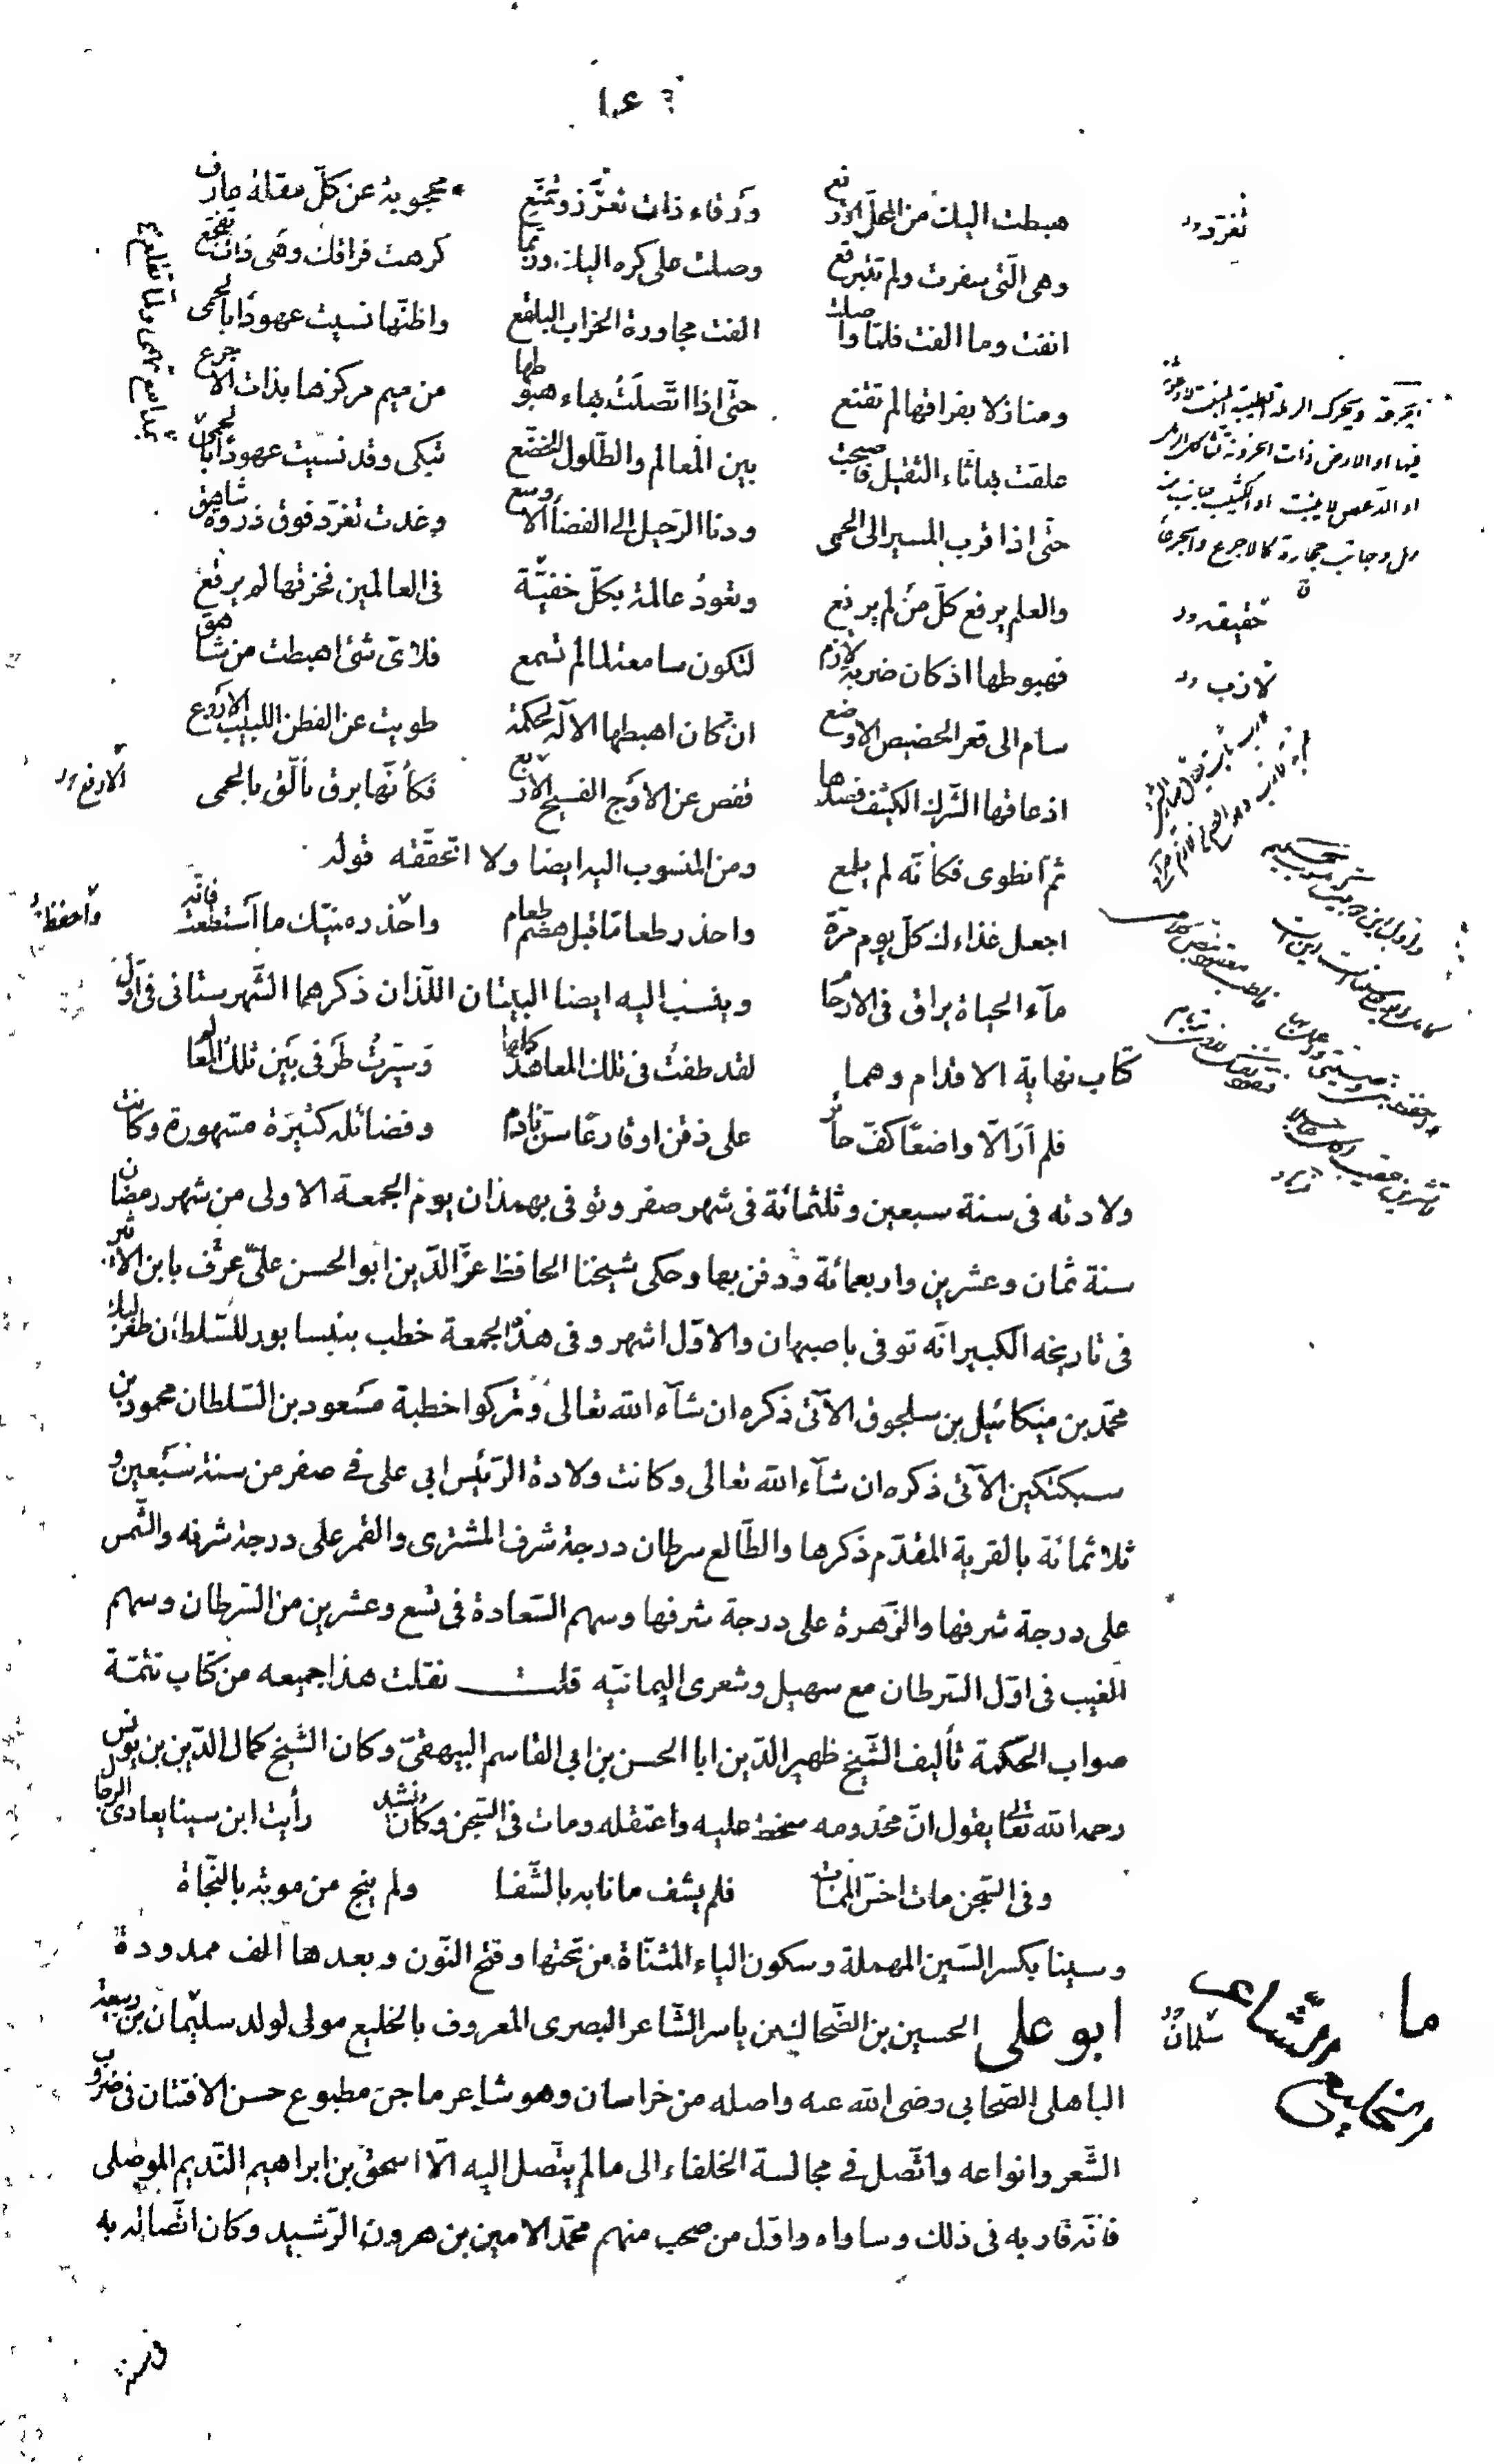 هبطت اليك من المحل الارفع ورقاء ذات تعزز وتمنع محجوبة عن كل مقلة عارف
وهى الّتى سفرت ولم تتبرقع وصلت على كره اليك وربما كرهت فراقك وهى ذات تفجع
انفت وما الفت فلمّا واصلت الفت مجاورة الخراب البلقع واظنّها نسيت عهودًا بالحمى
ومنازلا بفراقها لم تقنع حتّى اذا اتّصلت بهاء هبوطها من ميم مركزها بذات الاجرع
علقت بها ثاء الثقيل فاصبحت بين المعالم والطّلول الخضّع تبكى وقد نسيت عهودًا بالحمى
بمدامع تهمى ولمّا تقلع
حتّى اذا قرب المسير الى الحمى ودنا الرّحيل الى الفضأ الاوسع وغدت تغرّد فوق ذروة شاهق
والعلم يرفع كلّ من لم يرفع وتعودُ عالمة بكلّ خفيّة فى العالمين فخرقها لم يرقع
فهبوطها اذ كان ضربة لازم لتكون سامعة لما لم تسمع فلاىّ شئ اهبطت من شاهق
سام الى قعر الحضيض الاوضع ان كان اهبطها الاله لحكمة طويت عن الفطن اللبيب الاروع
اذ عاقها الشّرك الكثيف فصدها قفص عن الاوج الفسيح الاربع فكأنّها برق تألّق بالحمى
ثمّ انطوى فكأنّه لم يلمع ومن المنسوب اليه ايضا ولا اتحقّقه قوله
اجعل غذاءك كلّ يوم مرّة واحذر طعامًا قبل هضم طعام واحفظ منيّك ما استطعت فانّه
مآء الحياة يراق فى الارحام وينسب اليه ايضا البيتان اللّذان ذكرهما الشّهرستانى فى اوّل
كتاب نهاية الاقدام وهما لقد طفت فى تلك المعاهد كلها وسيّرتُ طرفى بين تلك المعالم
فلم ار الّا واضعًا كفّ حائر على ذقن او قارعًا سنّ نادم وفضائله كثيرة مشهورة وكانت
ولادته فى سنة سبعين وثلثمائة فى شهر صفر وتوفى بهمذان يوم الجمعة الاولى من شهر رمضان
سنة ثمان وعشرين واربعمائة ودفن بها وحكى شيخنا الحافظ عزّ الدّين ابو الحسن علىّ عرف بابن الاثير
فى تاريخه الكبير انّه توفى باصبهان والاوّل اشهر وفى هذه الجمعة خطب بنيسابور للسّلطان طغرلبك
محمّد بن ميكائيل بن سلجوق الآتى ذكره ان شآء الله تعالى وتركوا خطبة مسعود بن السّلطان محمود بن
سبكتكين الآتى ذكره ان شآء الله تعالى وكانت ولادة الرّئيس ابى على فى صفر من سنة سبعين و
ثلاثمائة بالقرية المقدّم ذكرها والطّالع سرطان درجة شرف المشترى والقمر على درجة شرفه والشّمس
على درجة شرفها والزّهرة على درجة شرفها وسهم السّعادة فى تسع وعشرين من السّرطان وسهم
الغيب فى اوّل السّرطان مع سهيل وشعرى اليمانيّه قلت نقلت هذا جميعه من كتاب تتمّة
صواب الحكمة تأليف الشّيخ ظهير الدّين ابا الحسن بن ابى القاسم البيهقىّ وكان الشّيخ كمال الدّين بن يونس
رحمه الله تعالى يقول انّ مخدومه سخط عليه واعتقله ومات فى السّجن وكان ينشد رأيت ابن سينا يعادى الرجال
وفى السّجن مات اخسّ الممات فلم يشف ما نابه بالشّفا ولم ينج من موته بالنّجاة
وسينا بكسر السّين المهملة وسكون الياء المثنّاة من تحتها وفتح النّون وبعدها الف ممدودة
ابو على الحسين بن الضّحاك بن ياسر الشّاعر البصرى المعروف بالخليع مولى لولد سليمان بن ربيعة
الباهلى الصّحابى رضى الله عنه واصله من خراسان وهو شاعر ماجن مطبوع حسن الافتنان فى ضروب
الشّعر وانواعه واتّصل فى مجالسة الخلفاء الى ما لم يتّصل اليه الّا اسحق بن ابراهيم النّديم الموصلى
فانّه قاربه فى ذلك وساواه واوّل من صحب منهم محمّد الامين بن هرون الرّشيد وكان اتّصاله به
خفيّقه
لازب
الارفع
واحفظ
سلمان